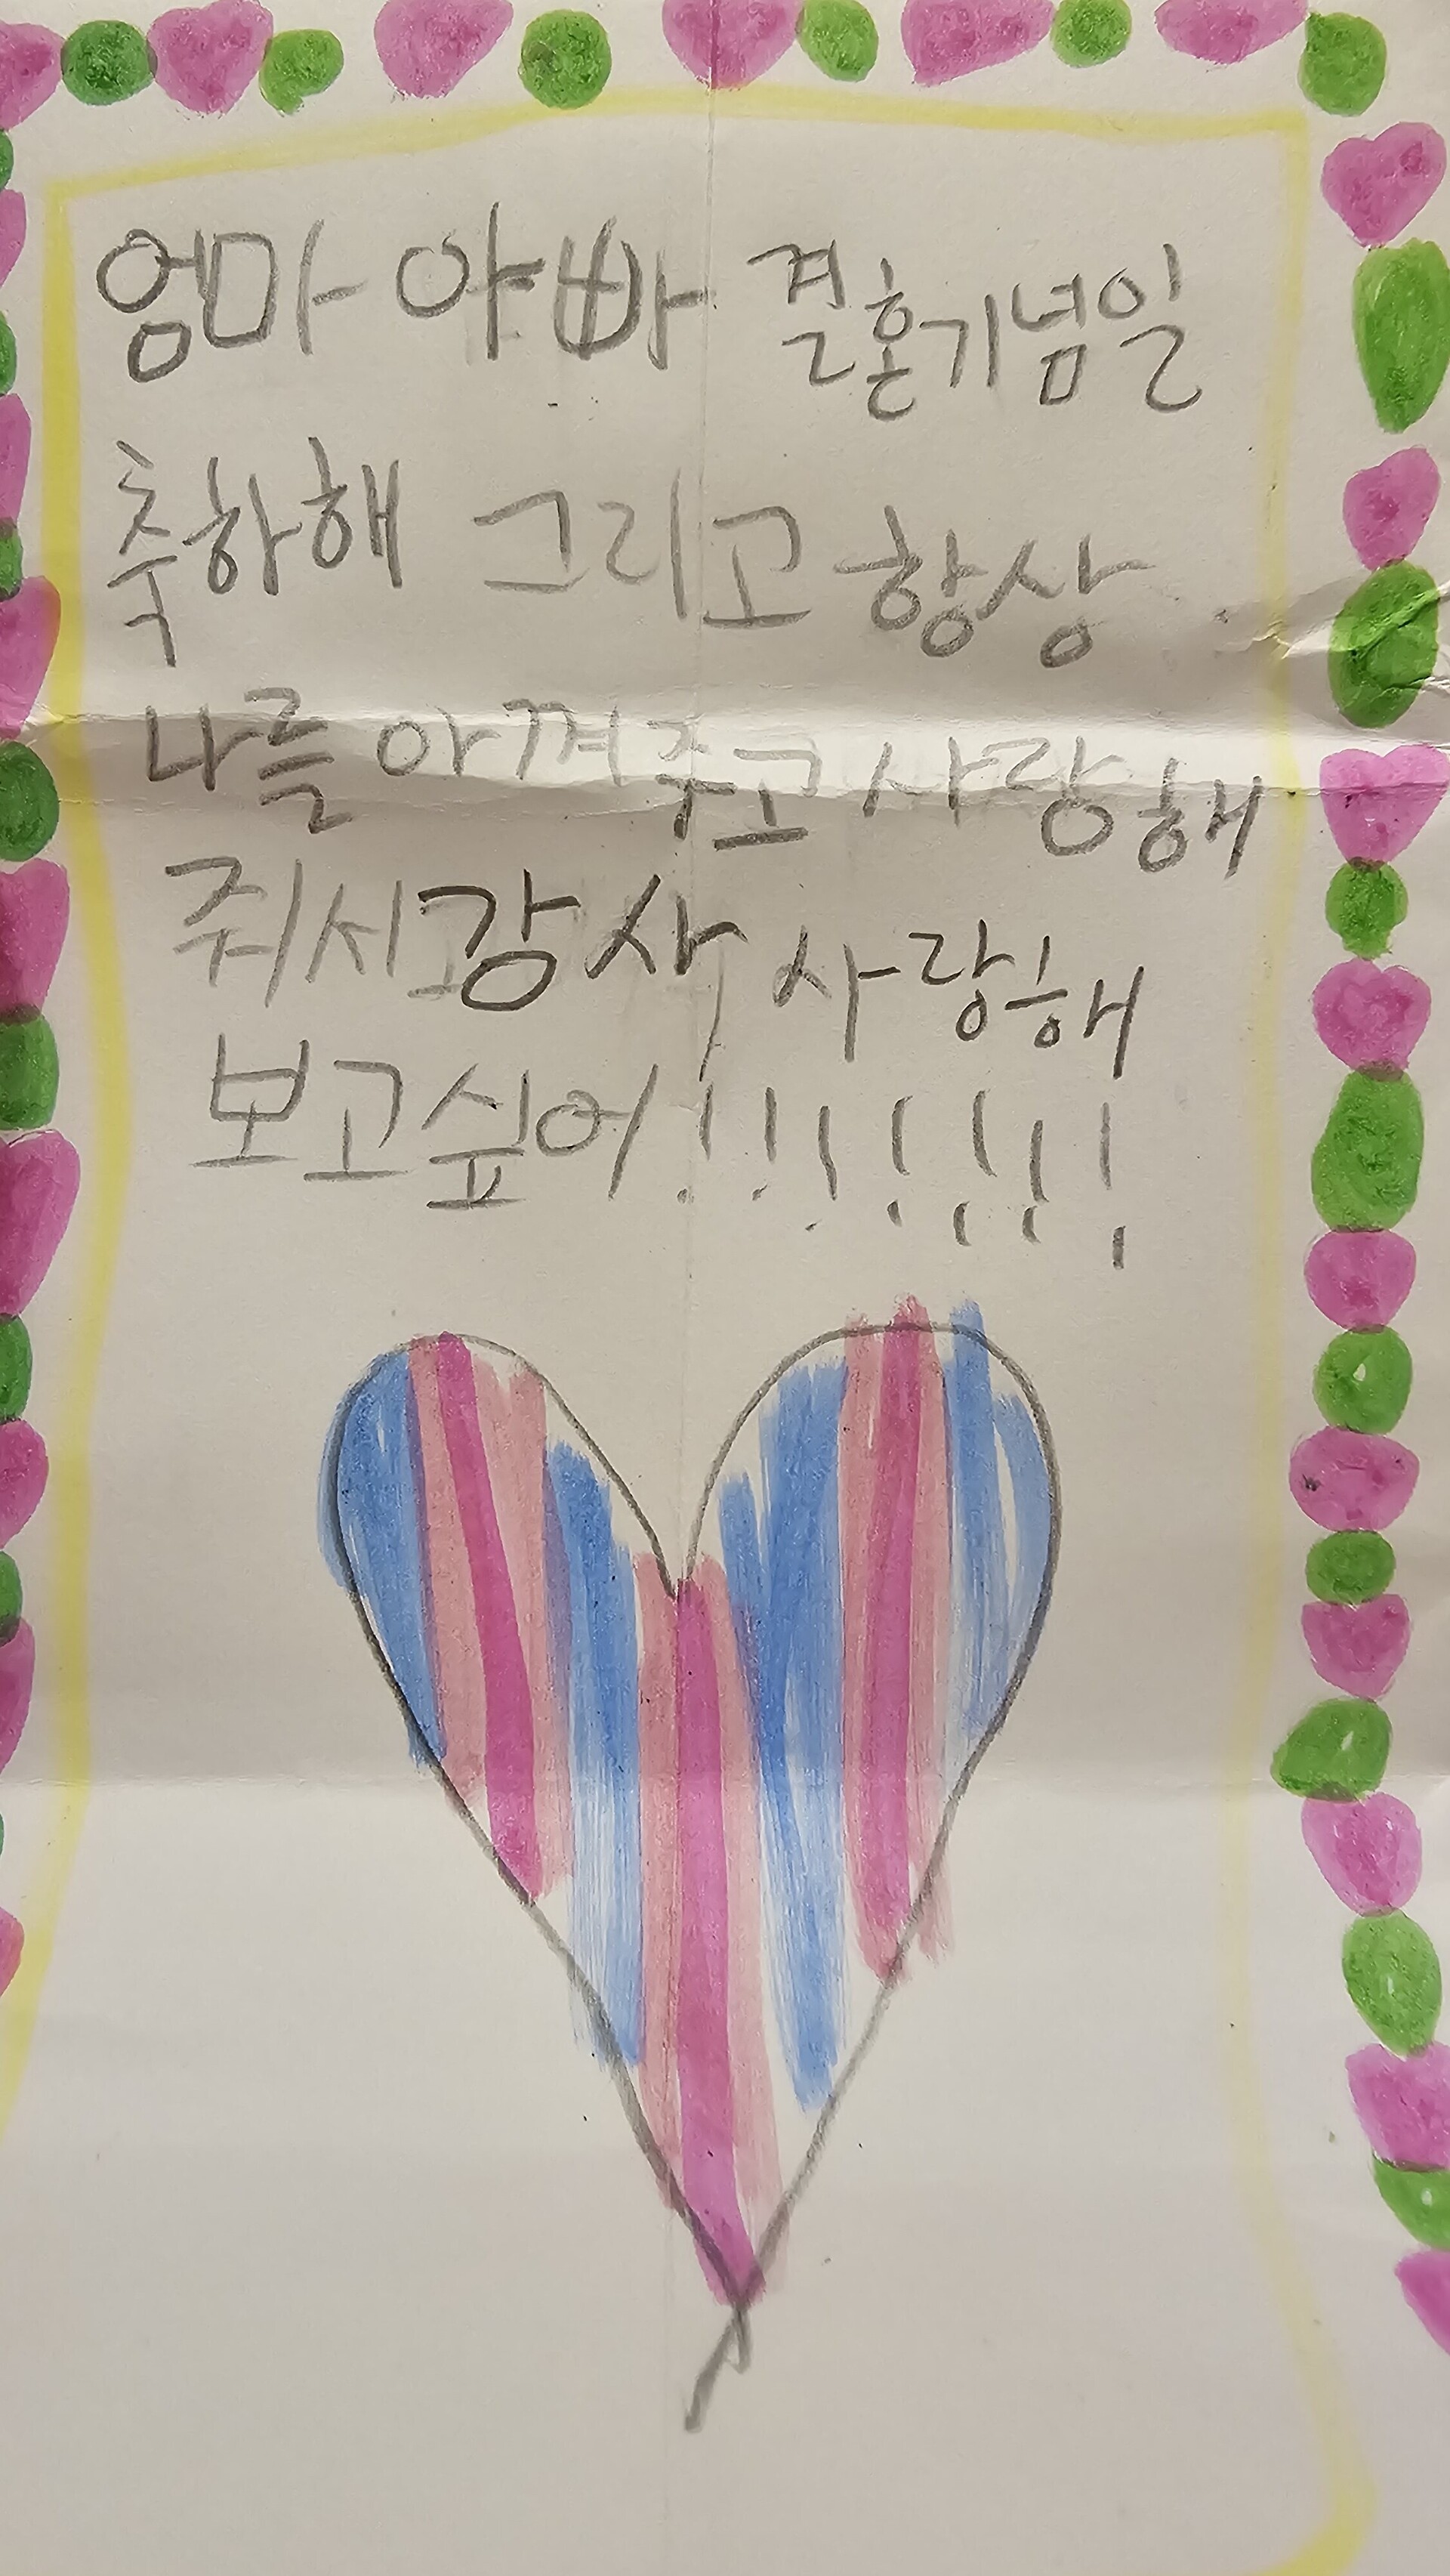 엄마 아빠 결혼기념일
축하해 그리고 항상
나를 아껴주고 사랑해
줘서 사랑해
보고싶어!!!!!!!